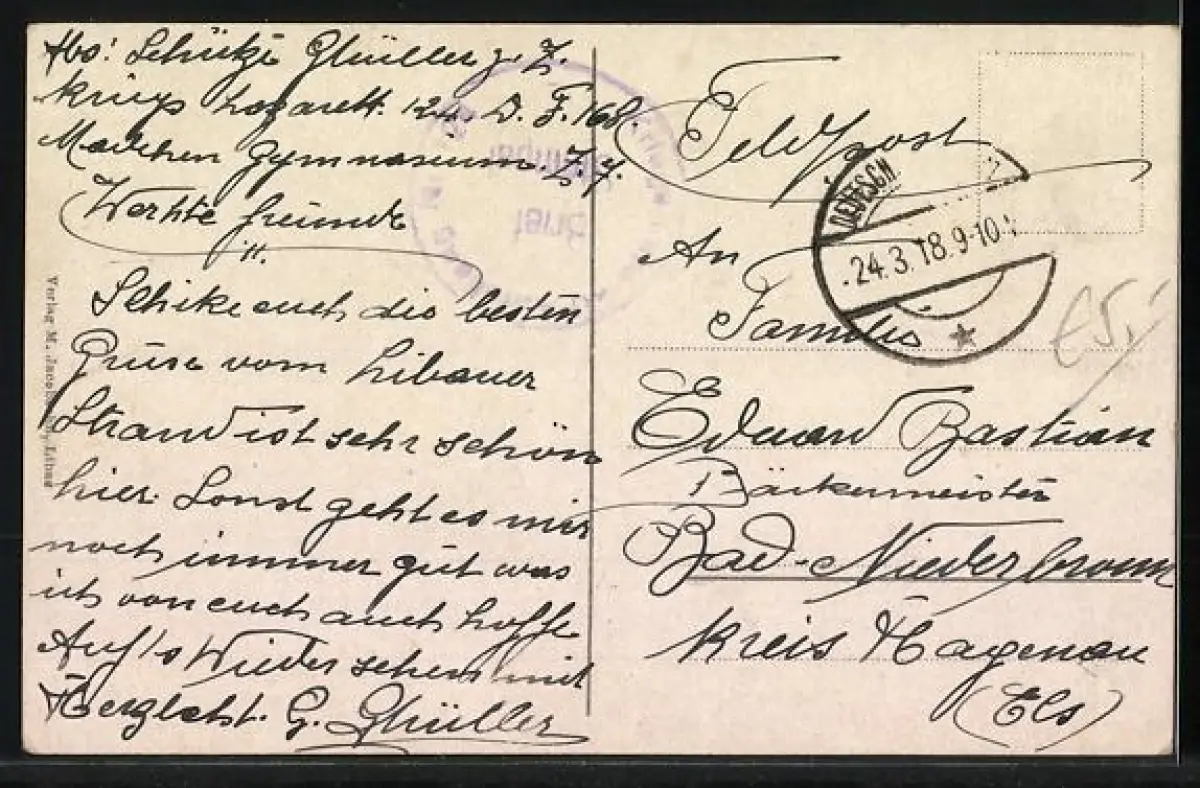 Abs: Schütze G. Müller z. Z.
Kriegs Lazarett. 124. D. F. 168.
Mädchen Gymnasium. Z. 7.
Werhte freunde
Schike euch die besten
Grüse vom Libauer
Strand ist sehr schön
hier. Sonst geht es mir
noch immer gut was
ich von euch auch hoffe
Auf's Wiedersehen mit
Herzlchst. G. Müller
Verlag M. Jacobsohn, Libau
Brief
Feldpost
24.3.18.9-10
An
Familie
Eduard Bastian
Bäckermeister
Bad-Niederbronn
Kreis Hagenau
(Els)
€5,-